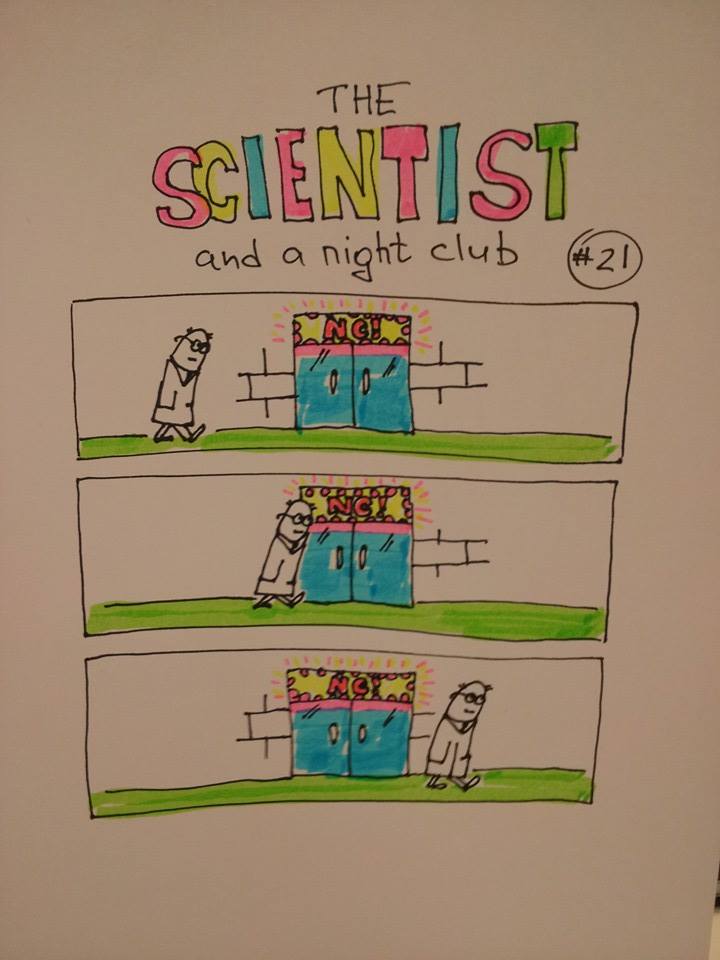 THE
SCIENTIST
and a night club
#21
NC!
NC!
NC!